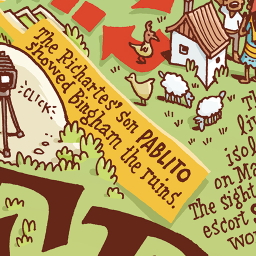 The Richartes' son PABLITO
showed Bingham the ruins.
CLICK
The
isol
on Ma
The sight
escort
wor